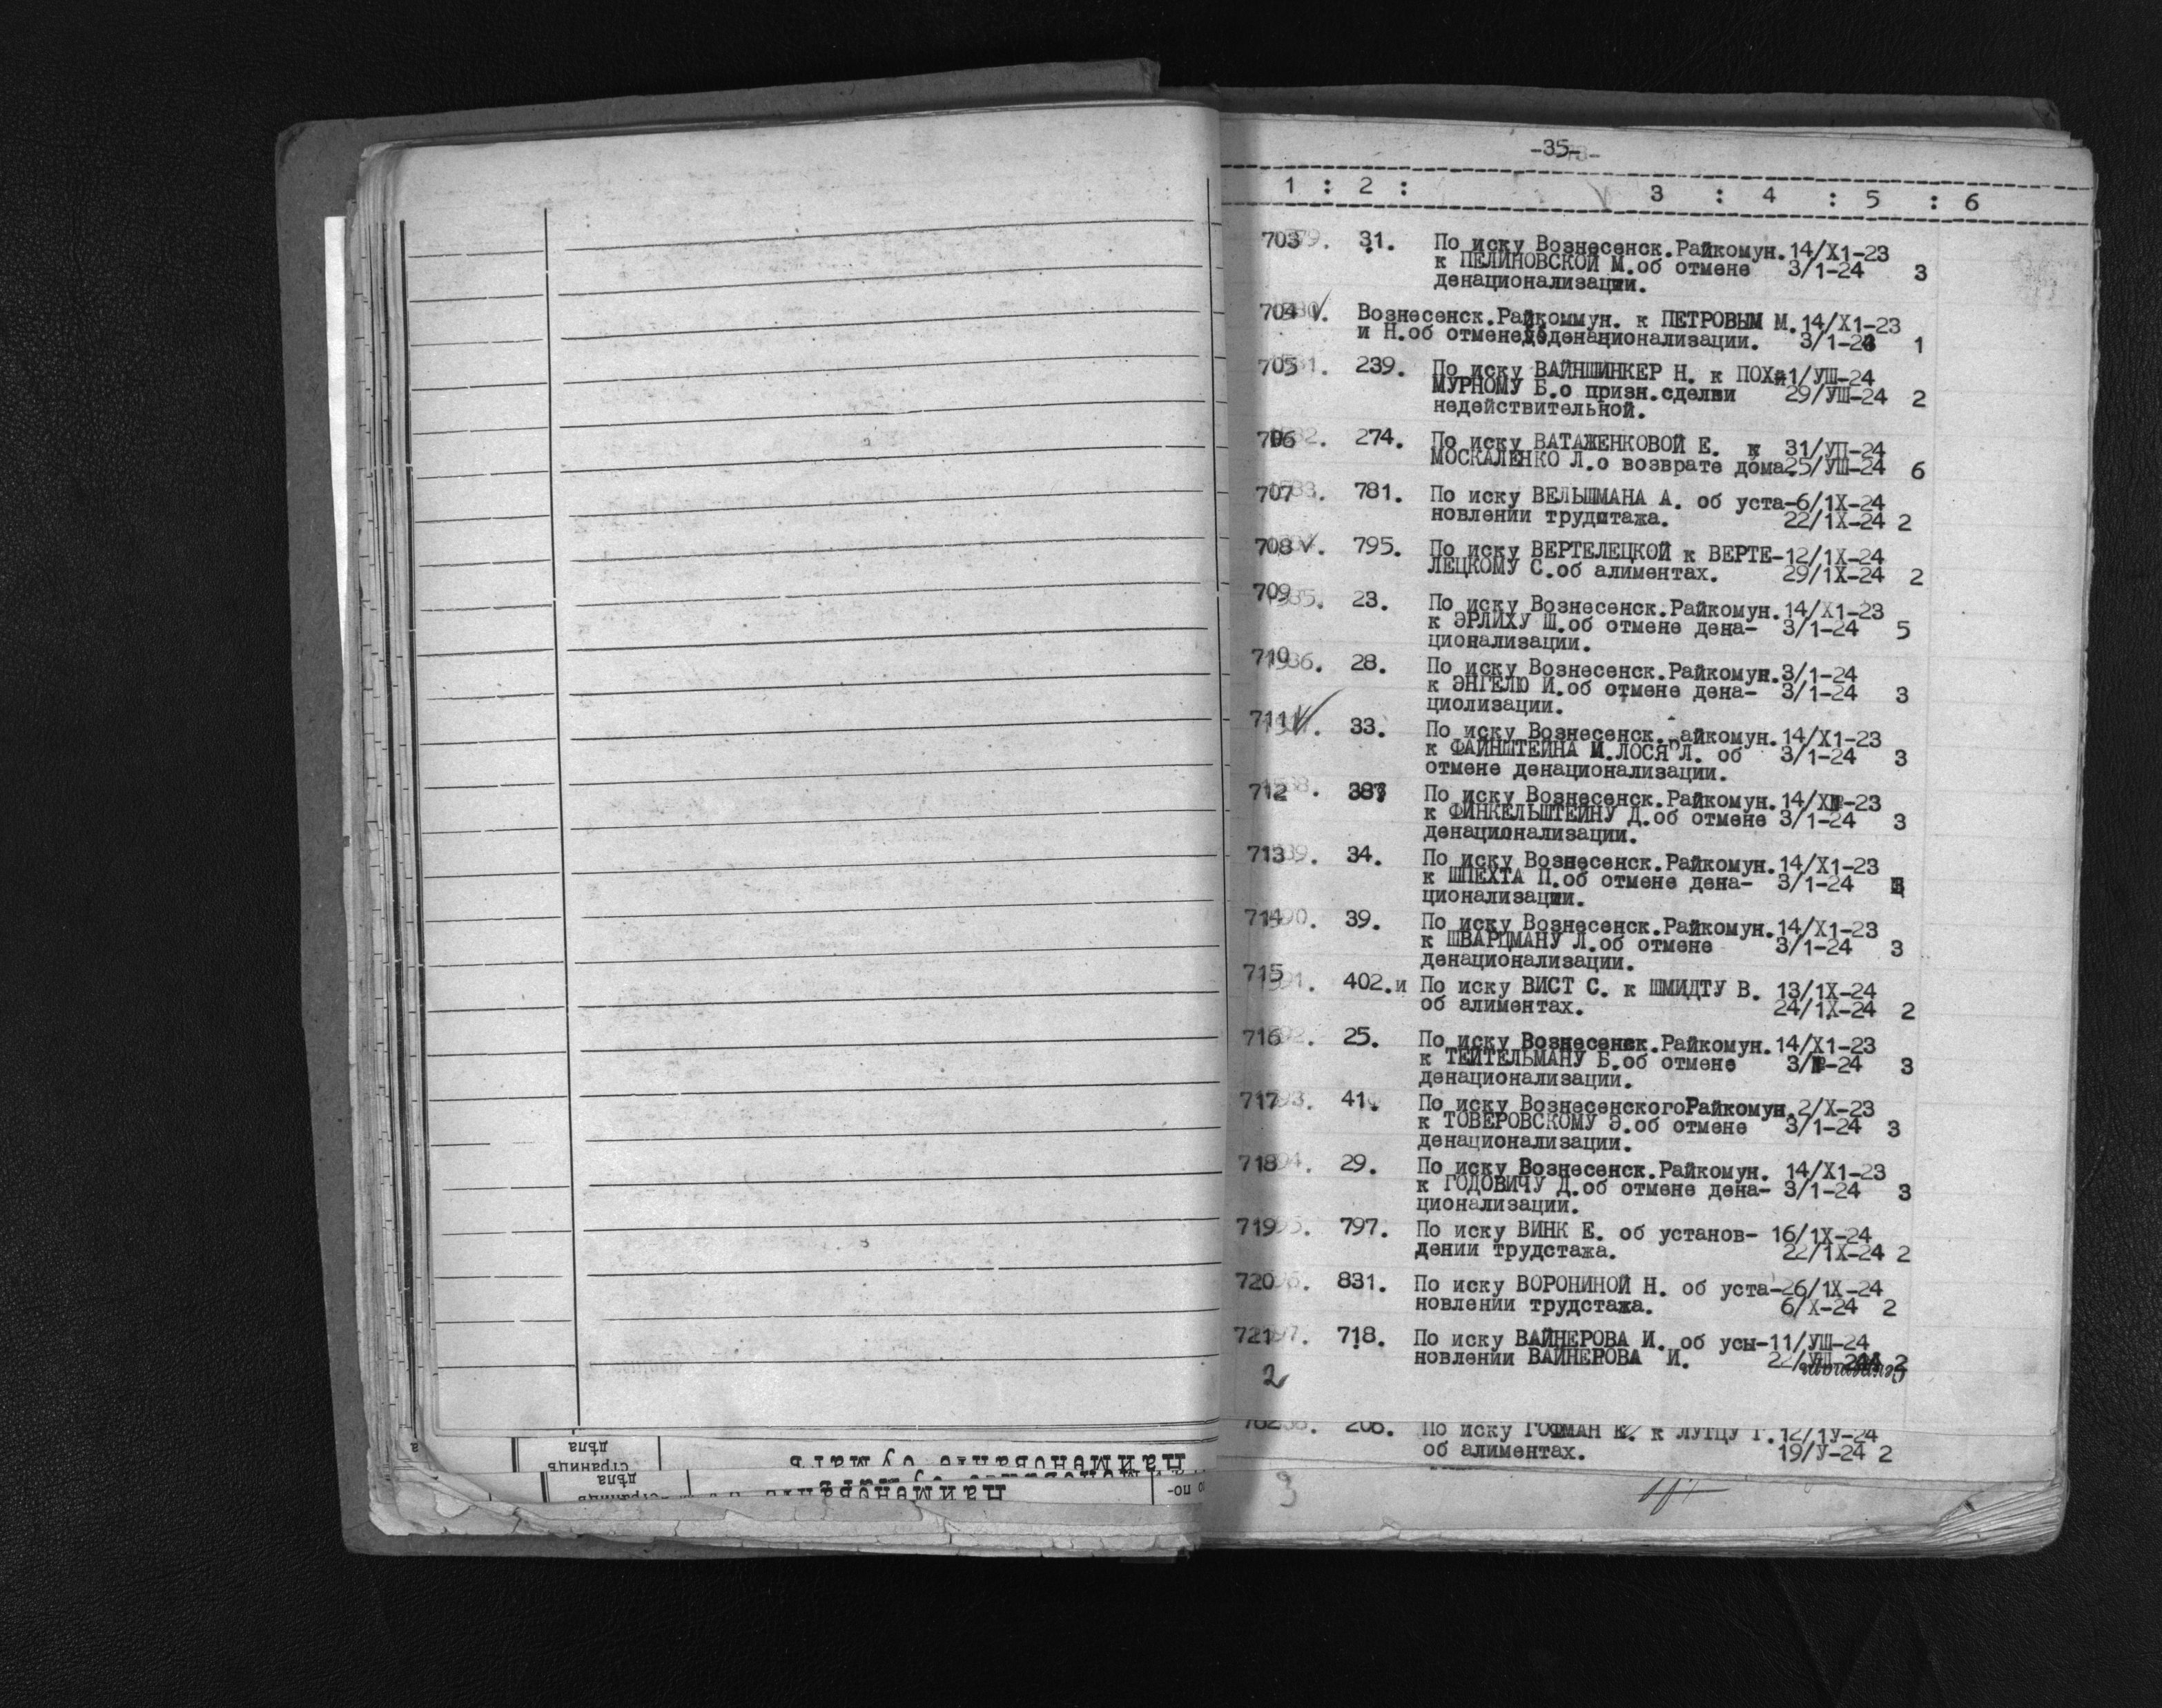 -35-
1 : 2 : 3 : 4 : 5 : 6
703. 31. По иску Вознесенск.Райкомун. 14/X1-23
к ПЕЛИНОВСКОЙ М.об отмене 3/1-24 3
денационализации.
704 V. Вознесенск.Райкоммун. к ПЕТРОВЫМ М. 14/X1-23
и Н.об отмене денационализации. 3/1-24 1
705. 239. По иску ВАЙНШИНКЕР Н. к ПОХ-1/УШ-24
МУРНОМУ Б.о призн.сделки 29/УШ-24 2
недействительной.
706. 274. По иску ВАТАЖЕНКОВОЙ Е. к 31/УП-24
МОСКАЛЕНКО Л.о возврате дома.25/УШ-24 6
707. 781. По иску ВЕЛЬШМАНА А. об уста-6/1X-24
новлении трудстажа. 22/1X-24 2
708 V. 795. По иску ВЕРТЕЛЕЦКОЙ к ВЕРТЕ-12/1X-24
ЛЕЦКОМУ С.об алиментах. 29/1X-24 2
709. 23. По иску Вознесенск.Райкомун. 14/X1-23
к ЭРЛИХУ Ш.об отмене дена- 3/1-24 5
ционализации.
710. 28. По иску Вознесенск.Райкомун.3/1-24
к ЭНГЕЛЮ И.об отмене дена- 3/1-24 3
циолизации.
711 V. 33. По иску Вознесенск.Райкомун. 14/X1-23
к ФАЙНШТЕЙНА И.ЛОСЯ Л. об 3/1-24 3
отмене денационализации.
712. По иску Вознесенск.Райкомун. 14/X1-23
к ФИНКЕЛЬШТЕЙНУ Д.об отмене 3/1-24 3
денационализации.
713. 34. По иску Вознесенск.Райкомун. 14/X1-23
к ШПЕХТА П.об отмене дена- 3/1-24 3
ционализации.
714. 39. По иску Вознесенск.Райкомун. 14/X1-23
к ШВАРЦМАНУ Л.об отмене 3/1-24 3
денационализации.
715. 402.и По иску ВИСТ С. к ШМИДТУ В. 13/1X-24
об алиментах. 24/1X-24 2
716. 25. По иску Вознесенск.Райкомун. 14/X1-23
к ТЕЙТЕЛЬМАНУ Б.об отмене 3/1-24 3
денационализации.
717. 41. По иску ВознесенскогоРайкомун.2/X-23
к ТОВЕРОВСКОМУ Э.об отмене 3/1-24 3
денационализации.
718. 29. По иску Вознесенск.Райкомун. 14/X1-23
к ГОДОВИЧУ Д.об отмене дена- 3/1-24 3
ционализации.
719. 797. По иску ВИНК Е. об установ- 16/1X-24
дении трудстажа. 22/1X-24 2
720. 831. По иску ВОРОНИНОЙ Н. об уста-26/1X-24
новлении трудстажа. 6/X-24 2
721. 718. По иску ВАЙНЕРОВА И. об усы-11/УШ-24
новлении ВАЙНЕРОВА И. 22/УШ-24 2
2
206. По иску ГОФМАН Е. к ЛУТЦУ Г.12/1У-24
об алиментах. 19/У-24 2
3
дѣла
страницъ
наименованіе бумагъ
дѣла
страницъ
наименованіе бумагъ